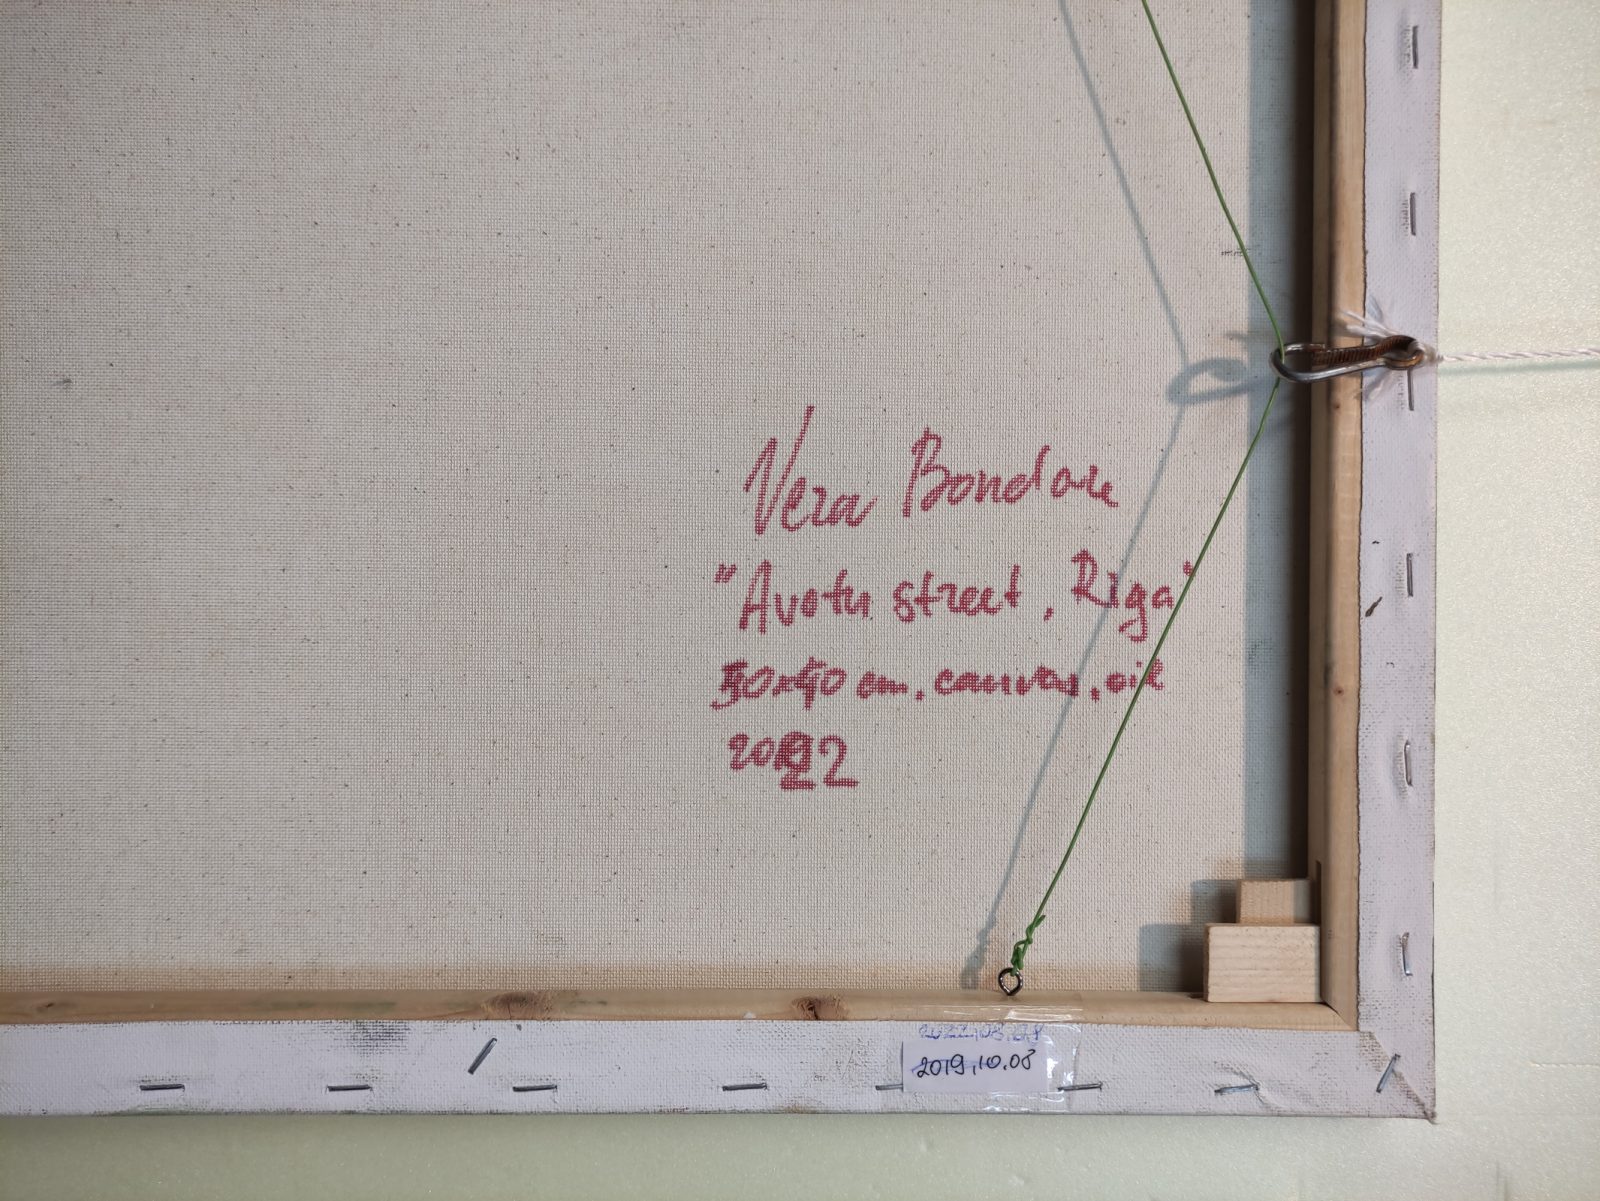 Vera Bondare
"Avotu street, Riga"
50x40 cm. canvas, oil
2022
2022.08.08
2019.10.08